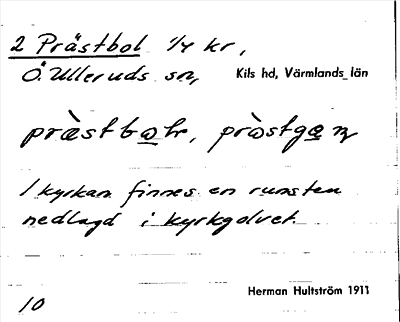 2 Prästbol 1/4 kr,
Ö. Ulleruds sn, Kils hd, Värmlands län
I kyrkan finnes en runsten
nedlagd i kyrkgolvet.
Herman Hultström 1911
10